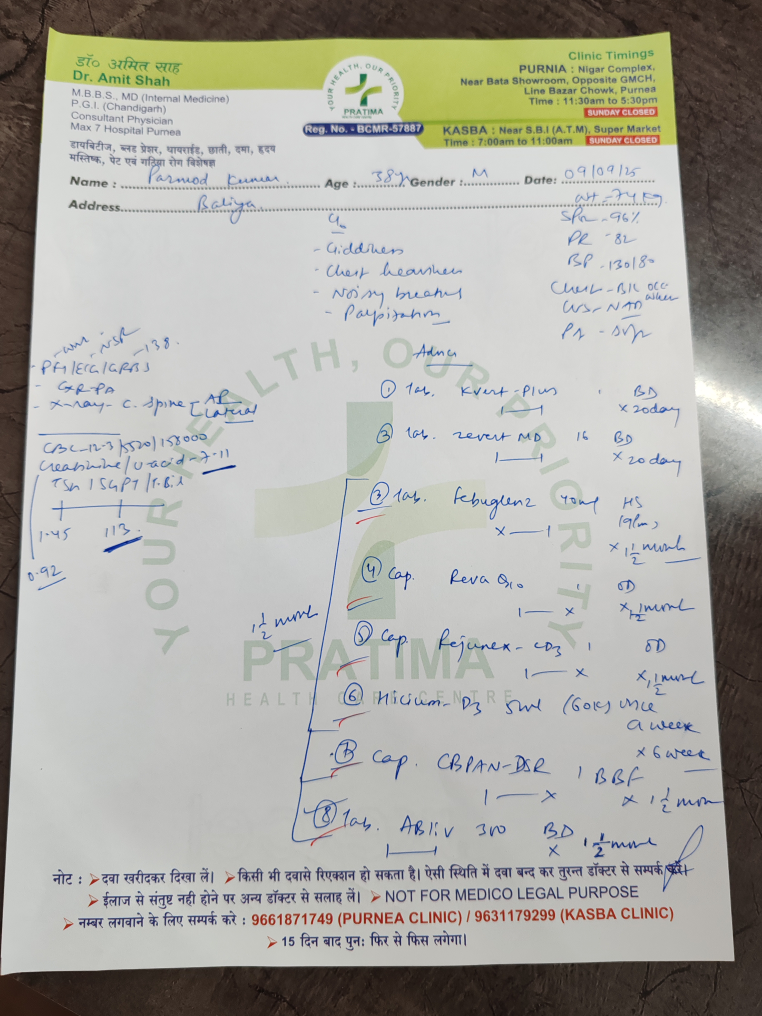 डॉ० अमित साह
Dr. Amit Shah
M.B.B.S., MD (Internal Medicine)
P.G.I. (Chandigarh)
Consultant Physician
Max 7 Hospital Purnea
डायबिटीज, ब्लड प्रेशर, थायराईड, छाती, दमा, हृदय
मस्तिष्क, पेट एवं गठिया रोग विशेषज्ञ
YOUR HEALTH, OUR PRIORITY
PRATIMA
Reg. No. - BCMR-57887
Clinic Timings
PURNIA : Nigar Complex,
Near Bata Showroom, Opposite GMCH,
Line Bazar Chowk, Purnea
Time : 11:30am to 5:30pm
SUNDAY CLOSED
KASBA : Near S.B.I (A.T.M), Super Market
Time : 7:00am to 11:00am SUNDAY CLOSED
Name : Parmod Kumar Age : 38y Gender : M Date: 09/09/25
Address Baliya
wt - 74 kg
SPo2 - 96%
PR - 82
BP - 130/80
Chest - B/L occ
CVS - NAD
PA - soft
- Giddiness
- Chest heaviness
- Noisy
- Palpitation
- 138
- PFT/ECG/GRBS
- CXR-PA
- X-ray - C. Spine - AP
Lateral
CBC - 12.3/5520/158000
Creatinine/U-acid - 7.11
TSH/SGPT/T.Bil
1.45 113
0.92
Advice
① Tab. Kvert-Plus 1 BD
x 20day
② Tab. Zevert MD 16 BD
x 20day
③ Tab. Febuglenz 40mg HS
x — 1
x 1 1/2 month
④ Cap. Reva Q10 1 OD
1 — x x 1 1/2 month
⑤ Cap. Rejunex-CD3 1 OD
1 — x x 1 1/2 month
1 1/2 month
⑥ D3 5ml (60K) once
a week
x 6 week
⑦ Cap. CBPAN-DSR 1 BBF
1 — x x 1 1/2 mon
⑧ Tab. ABliv 300 BD
x 1 1/2 month
YOUR HEALTH, OUR PRIORITY
PRATIMA
HEALTH CARE CENTRE
नोट : ➢ दवा खरीदकर दिखा लें। ➢ किसी भी दवासे रिएक्शन हो सकता है। ऐसी स्थिति में दवा बन्द कर तुरन्त डॉक्टर से सम्पर्क करें।
➢ ईलाज से संतुष्ट नही होने पर अन्य डॉक्टर से सलाह लें। ➢ NOT FOR MEDICO LEGAL PURPOSE
➢ नम्बर लगवाने के लिए सम्पर्क करे : 9661871749 (PURNEA CLINIC) / 9631179299 (KASBA CLINIC)
➢ 15 दिन बाद पुन: फिर से फिस लगेगा।